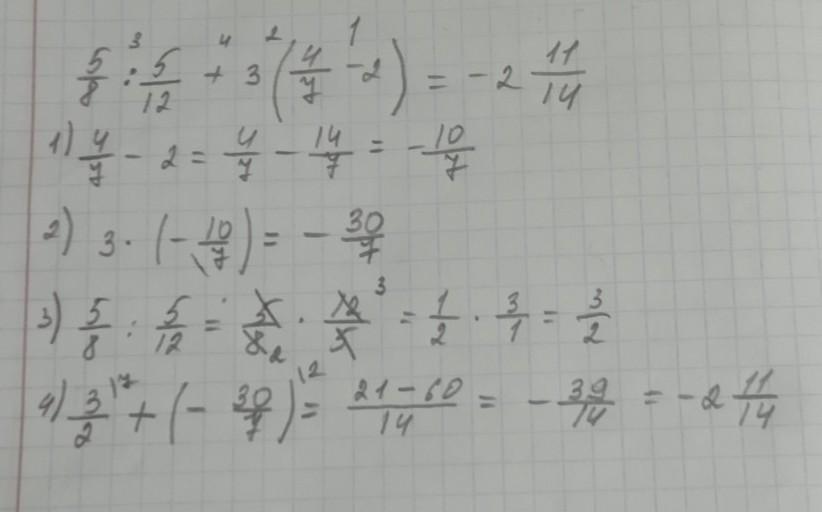 5/8 : 5/12 + 3 (4/7 - 2) = - 2 11/14
1) 4/7 - 2 = 4/7 - 14/7 = - 10/7
2) 3 · (- 10/7) = - 30/7
3) 5/8 : 5/12 = 5/8 2 · 12/5 3 = 1/2 · 3/1 = 3/2
4) 3/2 \7 + (- 30/7) \2 = 21 - 60/14 = - 39/14 = - 2 11/14